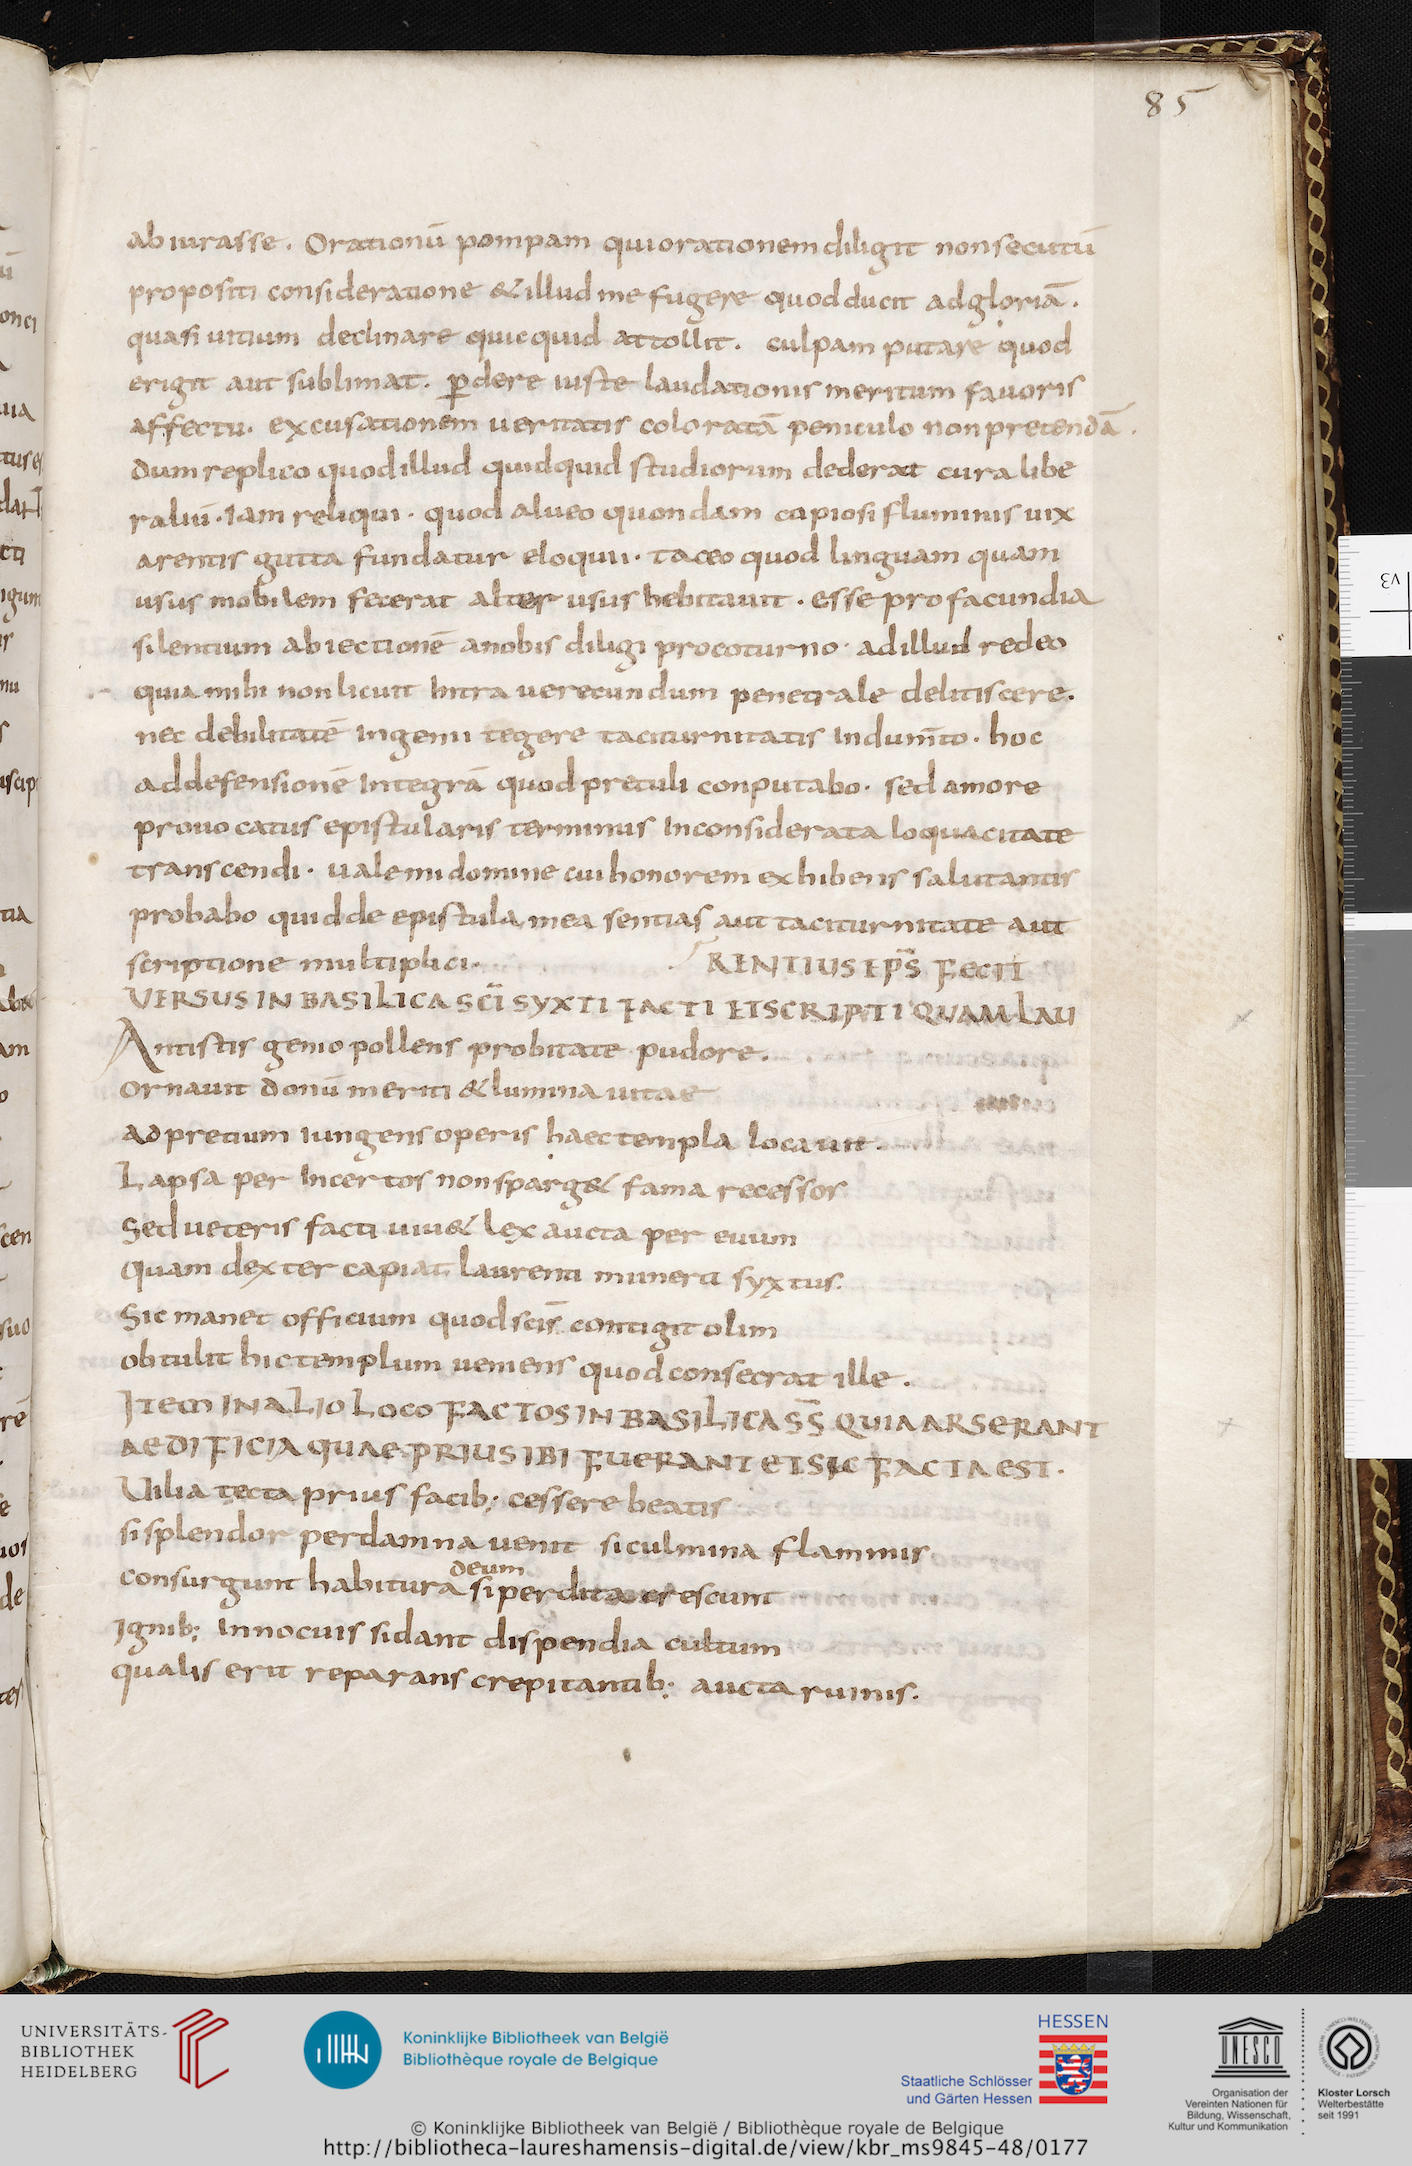 85
abiurasse. Orationū pompam qui orationem diligit non secutū
propositi consideratione & illud me fugere quod ducit ad gloriā.
quasi uitium declinare quicquid attollit. culpam putare quod
erigit aut sublimat. ꝑdere iuste laudationis meritum fauoris
affectu. excusationem ueritatis coloratā peniculo non pretendā.
dum replico quod illud quidquid studiorum dederat cura libe
raliū. iam reliqui. quod alueo quondam copiosi fluminis uix
arentis gutta fundatur eloquii. taceo quod linguam quam
usus mobilem fecerat alter usus hebitauit. esse pro facundia
silentium abiectionē a nobis diligi pro coturno. ad illud redeo
quia mihi non licuit intra uerecundum penetrale delitiscere.
nec debilitatē ingenii tegere taciturnitatis indum̄to. hoc
ad defensionē integrā quod pretuli conputabo. sed amore
prouocatus epistularis terminus inconsiderata loquacitate
transcendi. uale mi domine cui honorem exhibens salutantis
probabo quid de epistula mea sentias aut taciturnitate aut
scriptione multiplici.
RENTIUS EP̄S FECIT
VERSUS IN BASILICA SC̄I SYXTI FACTI ET SCRIPTI QUAM LAU
Antistis genio pollens probitate pudore.
ornauit donū meriti & lumina uitae
ad pretium iungens operis haec templa locauit.
Lapsa per incertos non sparg& fama recessos
Sed ueteris facti uiu& lex aucta per euum
quam dexter capiat laurenti munera syxtus.
Sic manet officium quod sc̄is contigit olim
obtulit hic templum ueniens quod consecrat ille.
ITEM IN ALIO LOCO FACTOS IN BASILICA S̄S̄ QUIA ARSERANT
AEDIFICIA QUAE PRIUS IBI FUERANT ET SIC FACTA EST.
Vilia tecta prius facib; cessere beatis
si splendor per damna uenit si culmina flammis
deum
consurgunt habitura si perdita crescunt
ignib; innocuis si dant dispendia cultum
qualis erit reparans crepitantib; aucta ruinis.
UNIVERSITÄTS-
BIBLIOTHEK
HEIDELBERG
Koninklijke Bibliotheek van België
Bibliothèque royale de Belgique
HESSEN
Staatliche Schlösser
und Gärten Hessen
UNESCO
Organisation der
Vereinten Nationen für
Bildung, Wissenschaft,
Kultur und Kommunikation
Kloster Lorsch
Welterbestätte
seit 1991
© Koninklijke Bibliotheek van België / Bibliothèque royale de Belgique
http://bibliotheca-laureshamensis-digital.de/view/kbr_ms9845-48/0177